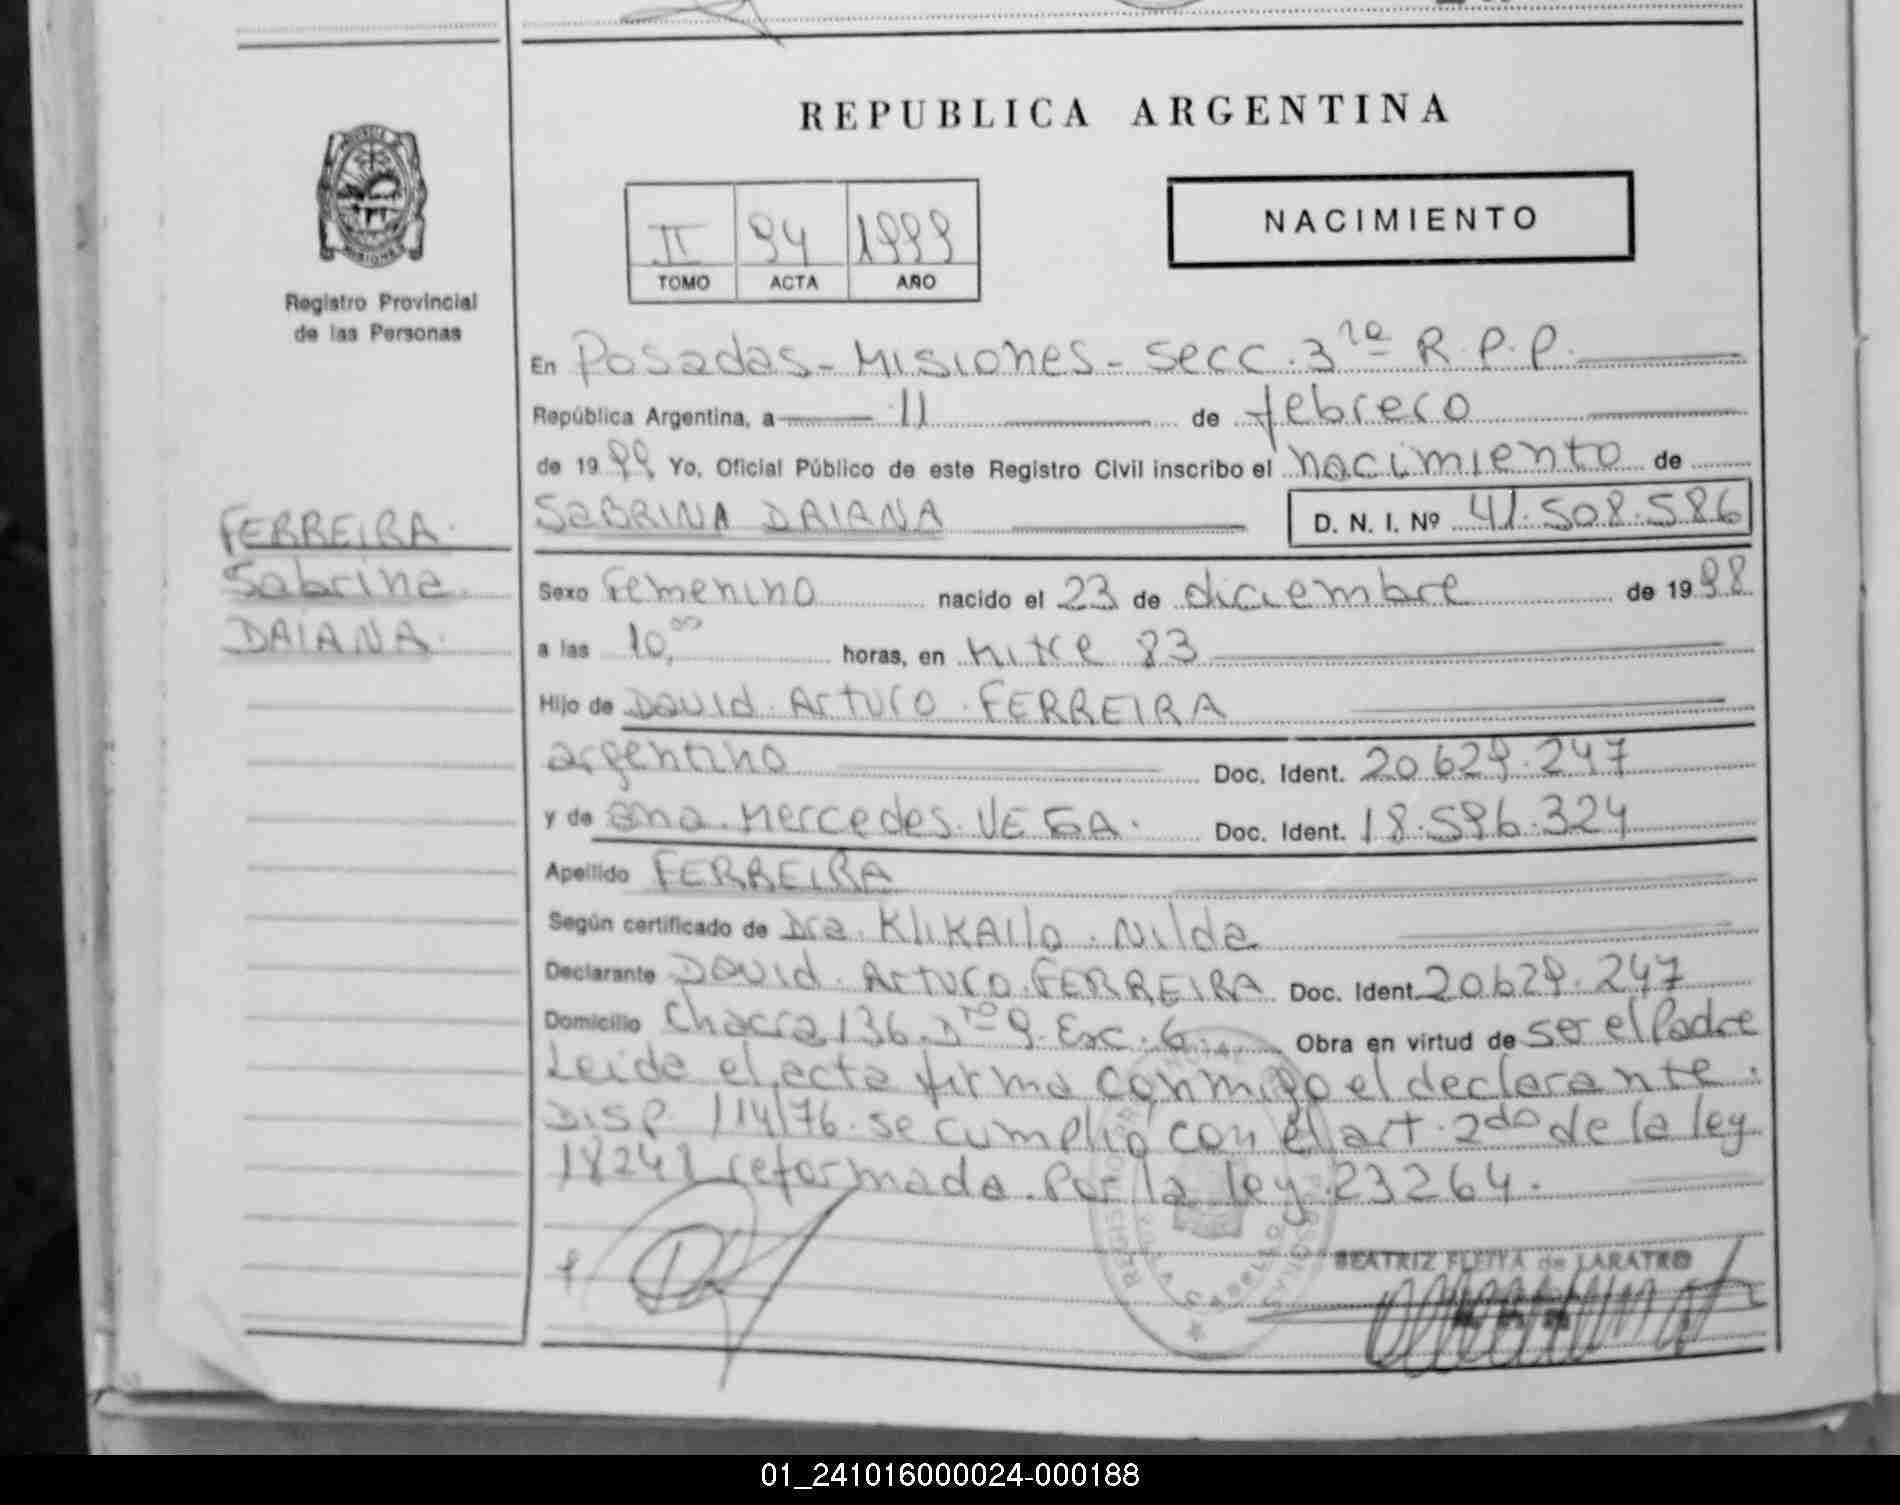 REPUBLICA ARGENTINA
Registro Provincial
de las Personas
II 94 1999
TOMO ACTA AÑO
NACIMIENTO
En Posadas - Misiones - Secc. 3ra R.P.P.
República Argentina, a 11 de febrero
de 1999 Yo, Oficial Público de este Registro Civil inscribo el nacimiento de
SABRINA DAIANA D. N. I. Nº 41.508.586
FERREIRA.
Sabrina
DAIANA.
Sexo Femenino nacido el 23 de diciembre de 1998
a las 10,00 horas, en Mitre 83
Hijo de David Arturo FERREIRA
argentino Doc. Ident. 20.629.247
y de Ana Mercedes VEGA. Doc. Ident. 18.596.324
Apellido FERREIRA
Según certificado de Dra. Nilda
Declarante David Arturo FERREIRA Doc. Ident. 20.629.247
Domicilio Chacra 136 9 Esc. 6 Obra en virtud de ser el Padre
Leida el acta firma conmigo el declarante.
DISP. 114/76. se cumplió con el art. 2do de la ley
18248 reformada por la ley 23264.
BEATRIZ FLEITA de LARATRO
01_241016000024-000188